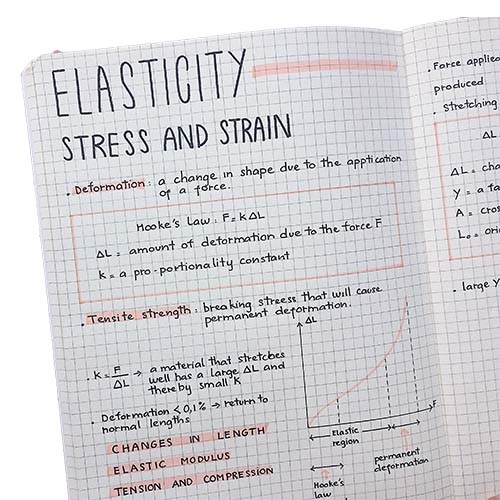 ELASTICITY
STRESS AND STRAIN
. Deformation : a change in shape due to the application
of a force.
Hooke's Law : F = k ΔL
ΔL = amount of deformation due to the force F
k = a pro-portionality constant
. Tensite strength : breaking streess that will cause
permanent deformation.
. k = F/ΔL → a material that stretches
well has a large ΔL and
thereby small K
. Deformation < 0,1% → return to
normal lengths
CHANGES IN LENGTH
ELASTIC MODULUS
TENSION AND COMPRESSION
ΔL
F
Elastic
region
permanent
deformation
Hooke's
law
. Force applie
produced
. Stretching
ΔL
ΔL = cha
Y = a ta
A = cros
L₀ = ori
. large Y